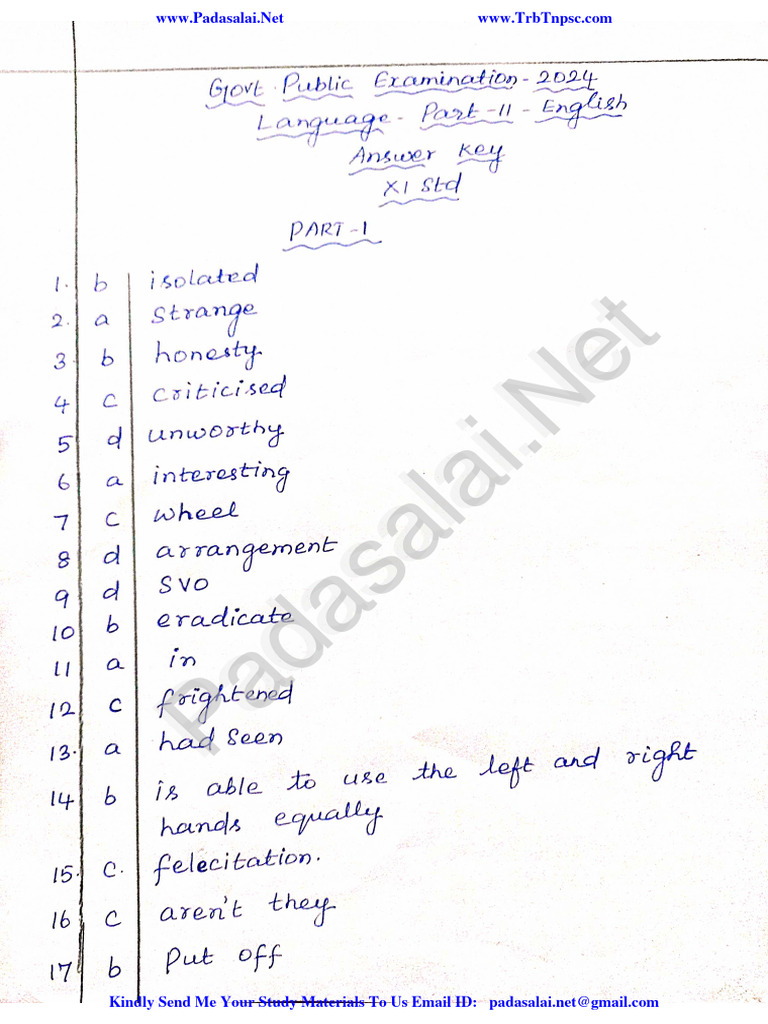 www.Padasalai.Net www.TrbTnpsc.com
Govt. Public Examination - 2024
Language - Part - II - English
Answer Key
XI Std
PART - I
1. b isolated
2. a Strange
3. b honesty
4 c criticised
5 d unworthy
6 a interesting
7 c wheel
8 d arrangement
9 d SVO
10 b eradicate
11 a in
12 c frightened
13. a had seen
14 b is able to use the left and right
hands equally
15. c. felecitation.
16 c aren't they
17 b Put off
Padasalai.Net
Kindly Send Me Your Study Materials To Us Email ID: padasalai.net@gmail.com